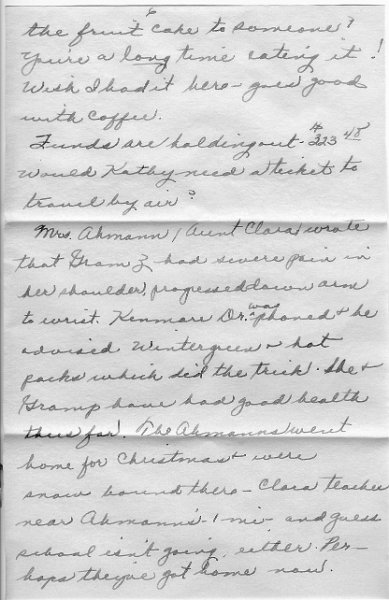 6
the fruit cake to someone?
You're a long time eating it!
Wish I had it here - goes good
with coffee.
Funds are holding out - $323 48
Would Kathy need a ticket to
travel by air?
Mrs. Ahmann (Aunt Clara) wrote
that Gram Z had severe pain in
her shoulder, progressed down arm
to wrist. Kenmare Dr. was phoned & he
advised Wintergreen & hot
packs which did the trick. She &
Gramp have had good health
thus far. The Ahmanns went
home for Christmas & were
snow bound there - Clara teaches
near Ahmann's - 1 mi - and guess
school isn't going, either. Per-
haps they've got home now.